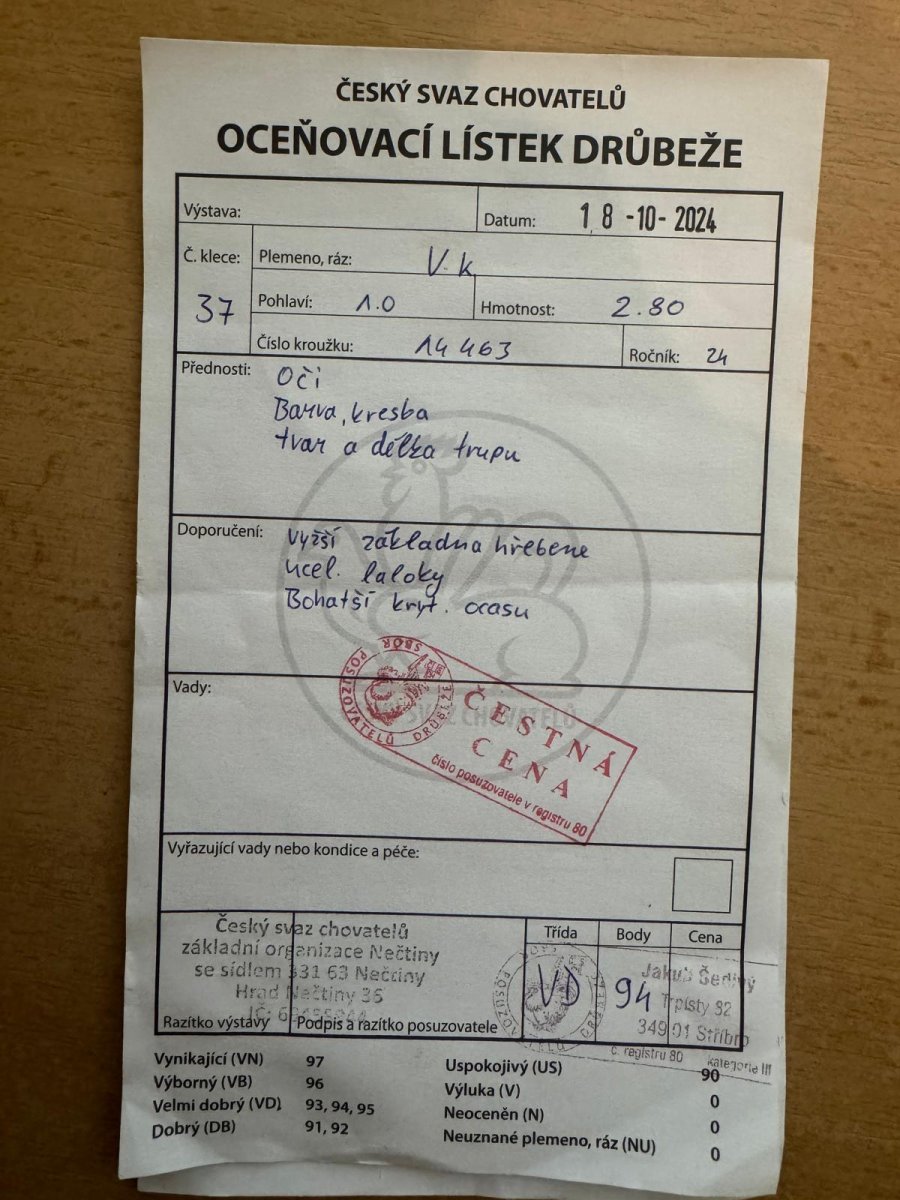 ČESKÝ SVAZ CHOVATELŮ
OCEŇOVACÍ LÍSTEK DRŮBEŽE
Výstava:
Datum: 18-10-2024
Č. klece: 37
Plemeno, ráz: V.k
Pohlaví: 1.0
Hmotnost: 2.80
Číslo kroužku: 14463
Ročník: 24
Přednosti: Oči
Barva, kresba
tvar a délka trupu
Doporučení: Vyšší základna hřebene
ucel. laloky
Bohatší kryt. ocasu
Vady:
SBOR POSUZOVATELŮ DRŮBEŽE
ČESTNÁ
CENA
číslo posuzovatele v registru 80
SVAZ CHOVATELŮ
Vyřazující vady nebo kondice a péče:
Český svaz chovatelů
základní organizace Nečtiny
se sídlem 331 63 Nečtiny
Hrad Nečtiny 36
IČ:
Razítko výstavy
Podpis a razítko posuzovatele
Třída
Body
Cena
VD
94
Jakub Šedivý
Trpísty 82
349 01 Stříbro
č. registru 80 kategorie III
Vynikající (VN) 97
Výborný (VB) 96
Velmi dobrý (VD) 93, 94, 95
Dobrý (DB) 91, 92
Uspokojivý (US) 90
Výluka (V) 0
Neoceněn (N) 0
Neuznané plemeno, ráz (NU) 0